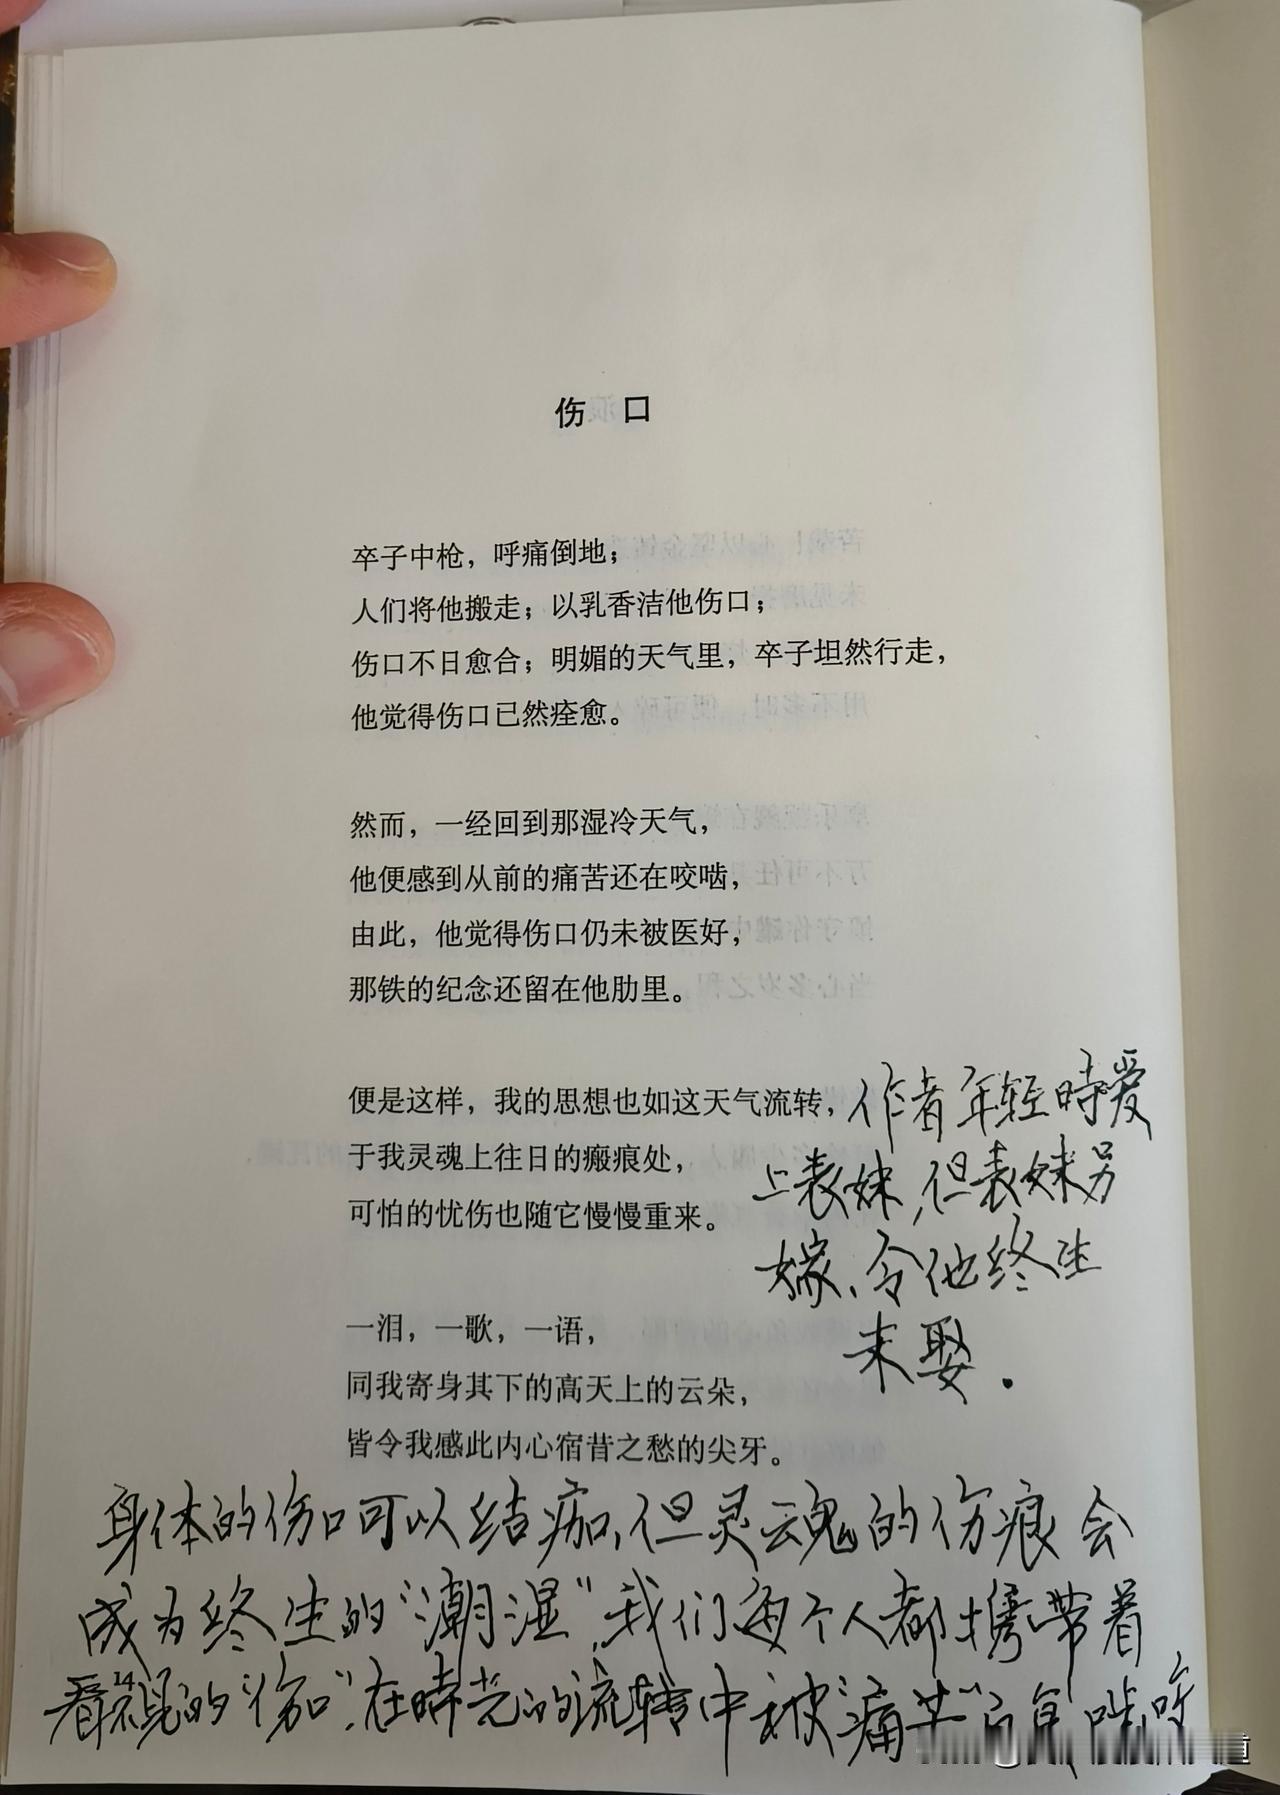 伤 口
卒子中枪，呼痛倒地；
人们将他搬走；以乳香洁他伤口；
伤口不日愈合；明媚的天气里，卒子坦然行走，
他觉得伤口已然痊愈。
然而，一经回到那湿冷天气，
他便感到从前的痛苦还在咬啮，
由此，他觉得伤口仍未被医好，
那铁的纪念还留在他肋里。
便是这样，我的思想也如这天气流转，
于我灵魂上往日的瘢痕处，
可怕的忧伤也随它慢慢重来。
一泪，一歌，一语，
同我寄身其下的高天上的云朵，
皆令我感此内心宿昔之愁的尖牙。
作者年轻時爱
上表妹，但表妹另
嫁、令他终生
未娶.
身体的伤口可以结痂，但灵魂的伤痕会
成为终生的“潮湿”，我们每个人都携带着
看不見的“伤口”，在時光的流转中被“痛苦”
道